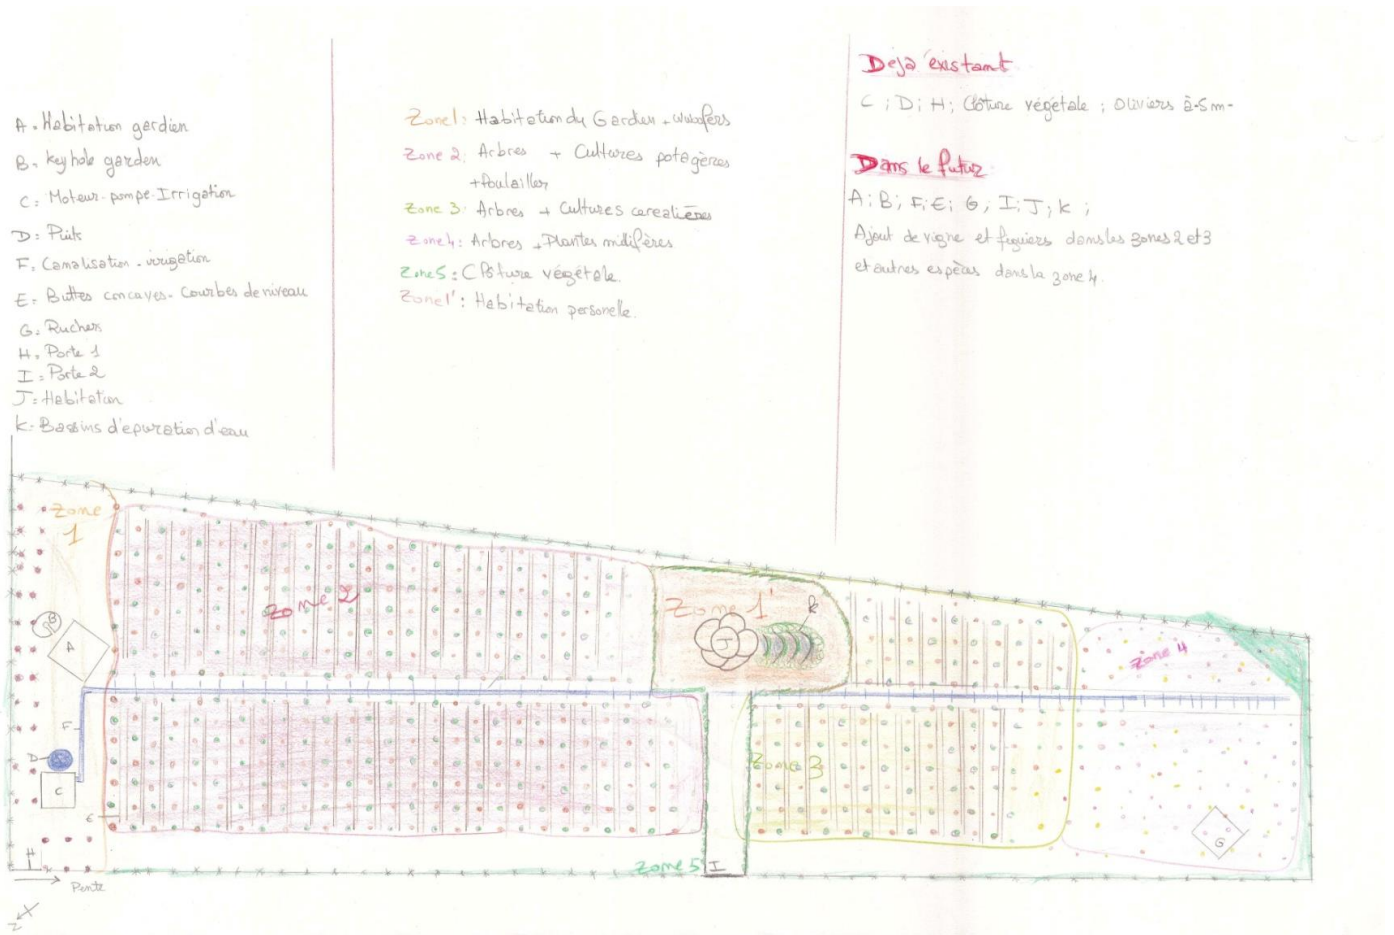 A. Habitation gardien
B. keyhole garden
C: Moteur-pompe-Irrigation
D: Puits
F. Canalisation - irrigation
E: Buttes concaves - Courbes de niveau
G. Ruches
H. Porte 1
I: Porte 2
J: Habitation
K. Bassins d'epuration d'eau
Zone1: Habitation du Gardien +
Zone 2: Arbres + Cultures potagères
+Poulailler
Zone 3: Arbres + Cultures cerealières
Zone4: Arbres + Plantes
Zone5: Clôture végétale.
Zone1': Habitation personelle.
Déjà existant
C; D; H; Clôture végétale; Oliviers à 5m-
Dans le futur
A; B; F; E; G, I; J; K;
Ajout de vigne et figuiers dans les zones 2 et 3
et autres espèces dans la zone 4.
Zone
1
Zone 2
Zone 1'
K
J
Zone 4
B
A
F
D
C
E
Zone 3
G
H
Zone 5
I
Pente
N